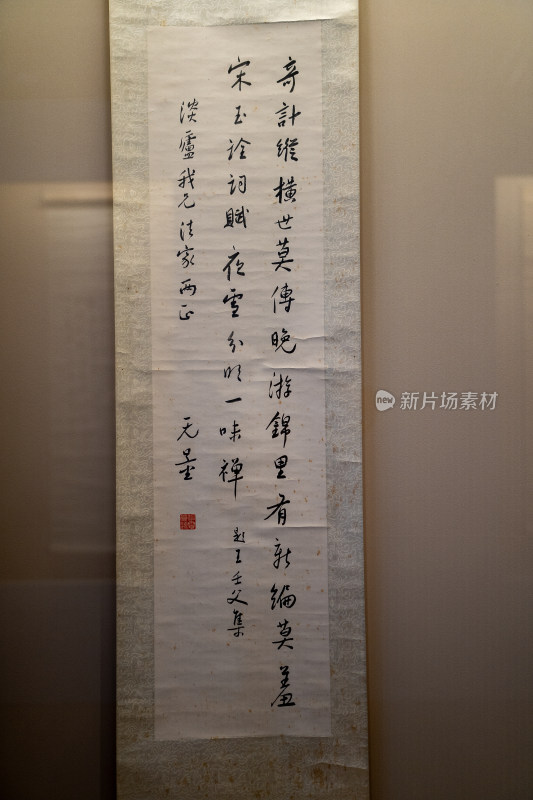 奇計縱橫世莫傳晚游錦里有新編莫羞
宋玉詮詞賦夜雪分明一味禪 題王壬父集
淡廬我兄法家兩正
无量
new 新片场素材